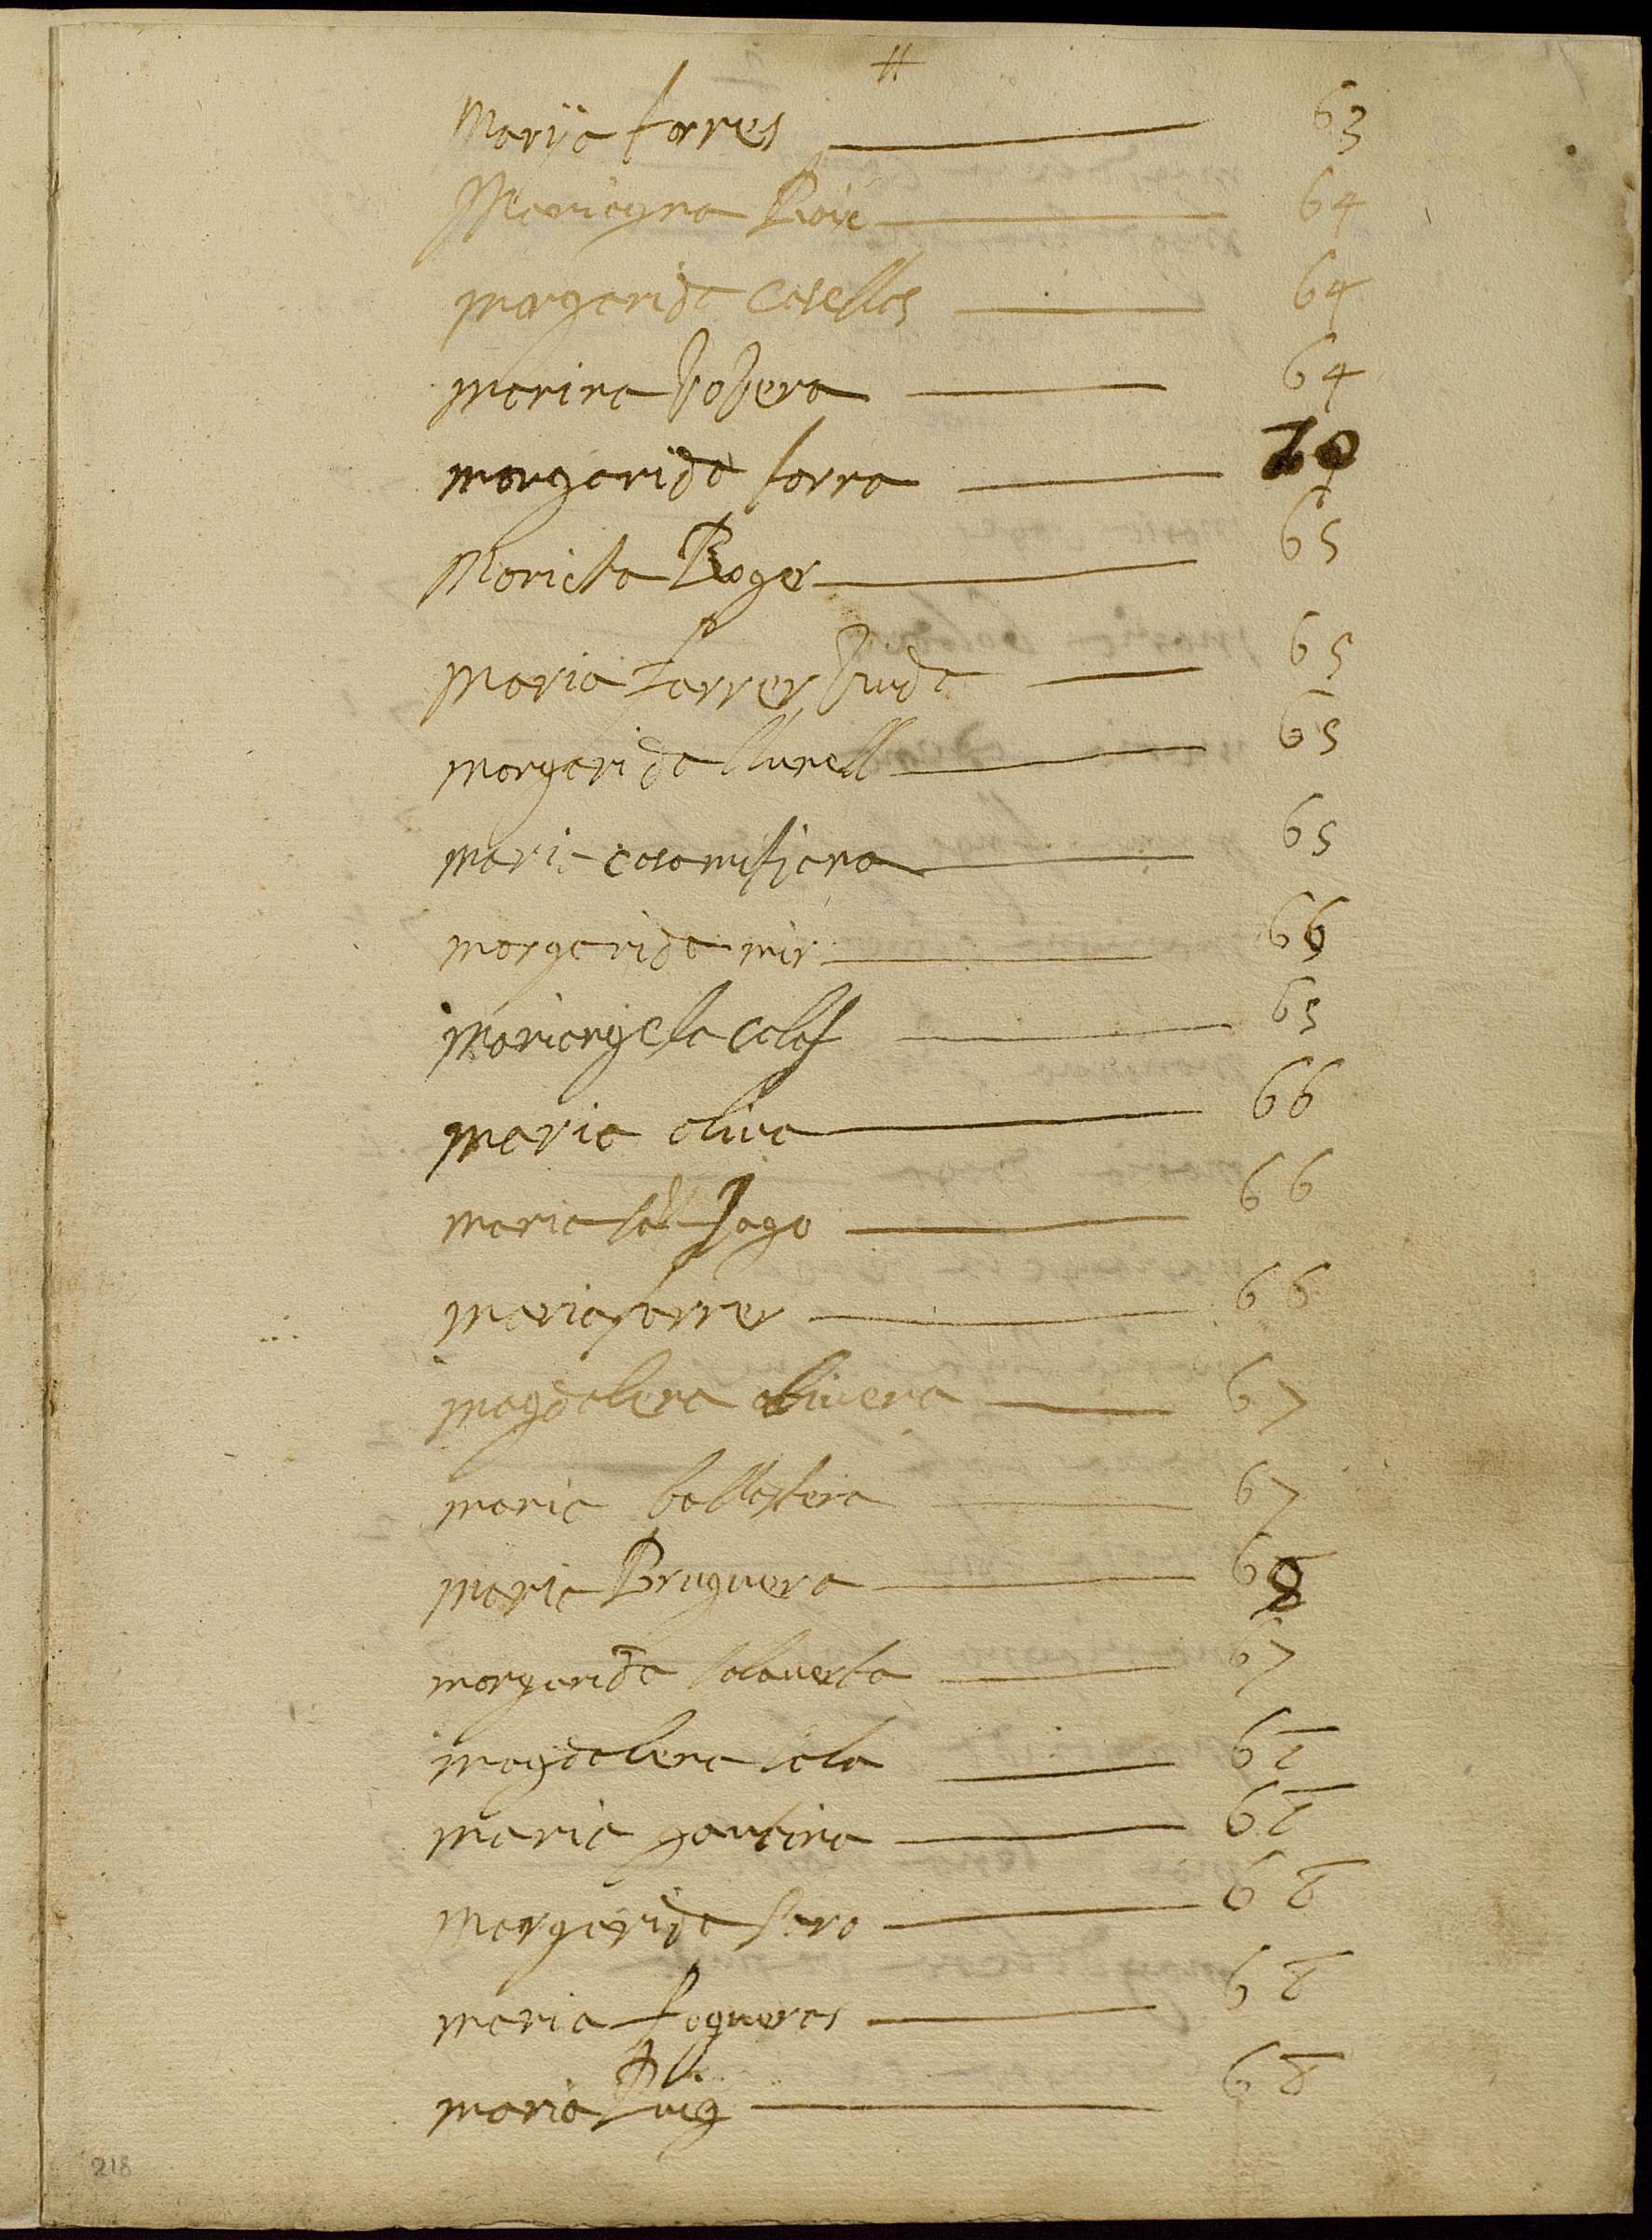 #
Marija torres 63
Mariagna Roic 64
margarida Casellas 64
marina 64
margarida torra 70
Marieta Roger 65
Maria ferrer viuda 65
margarida llurell 65
maria casamitjana 65
margarida mir 66
Mariangela calaf 65
maria oliva 66
maria Jago 66
maria ferrer 66
magdalena olivera 67
maria ballestera 67
maria Bruguera 68
margarida 67
magdalena sala 67
maria gantina 67
margarida 68
maria fogueras 68
maria Puig 68
218